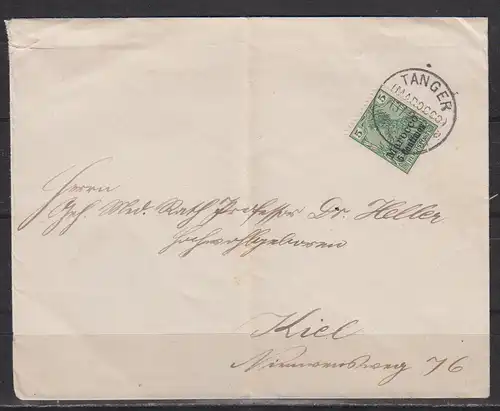 TANGER
(MAROCCO)
5 5
Marocco
5 Centimos
Herrn
Geh. Med. Rath Professor Dr. Heller
Hochwohlgeboren
Kiel
Niemannsweg 76